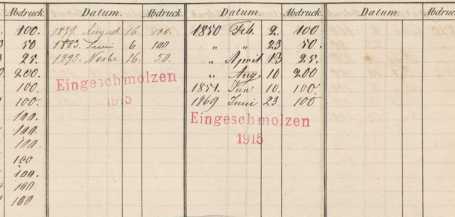 Abdruck. Datum. Abdruck. Datum. Abdruck. Datum. Abdruck.
100. 1859. August 16. 100. 1850 Feb. 2. 100
50 1883. Juni 6 100 " " 23 50.
25. 1895. 16. 50. " April 13 25.
200. " Aug. 10. 200
100. Eingeschmolzen 1851. Jan. 10. 100
100. 1915 1869 Juni 23 100
100. Eingeschmolzen
100. 1915
100.
100
100.
100
100